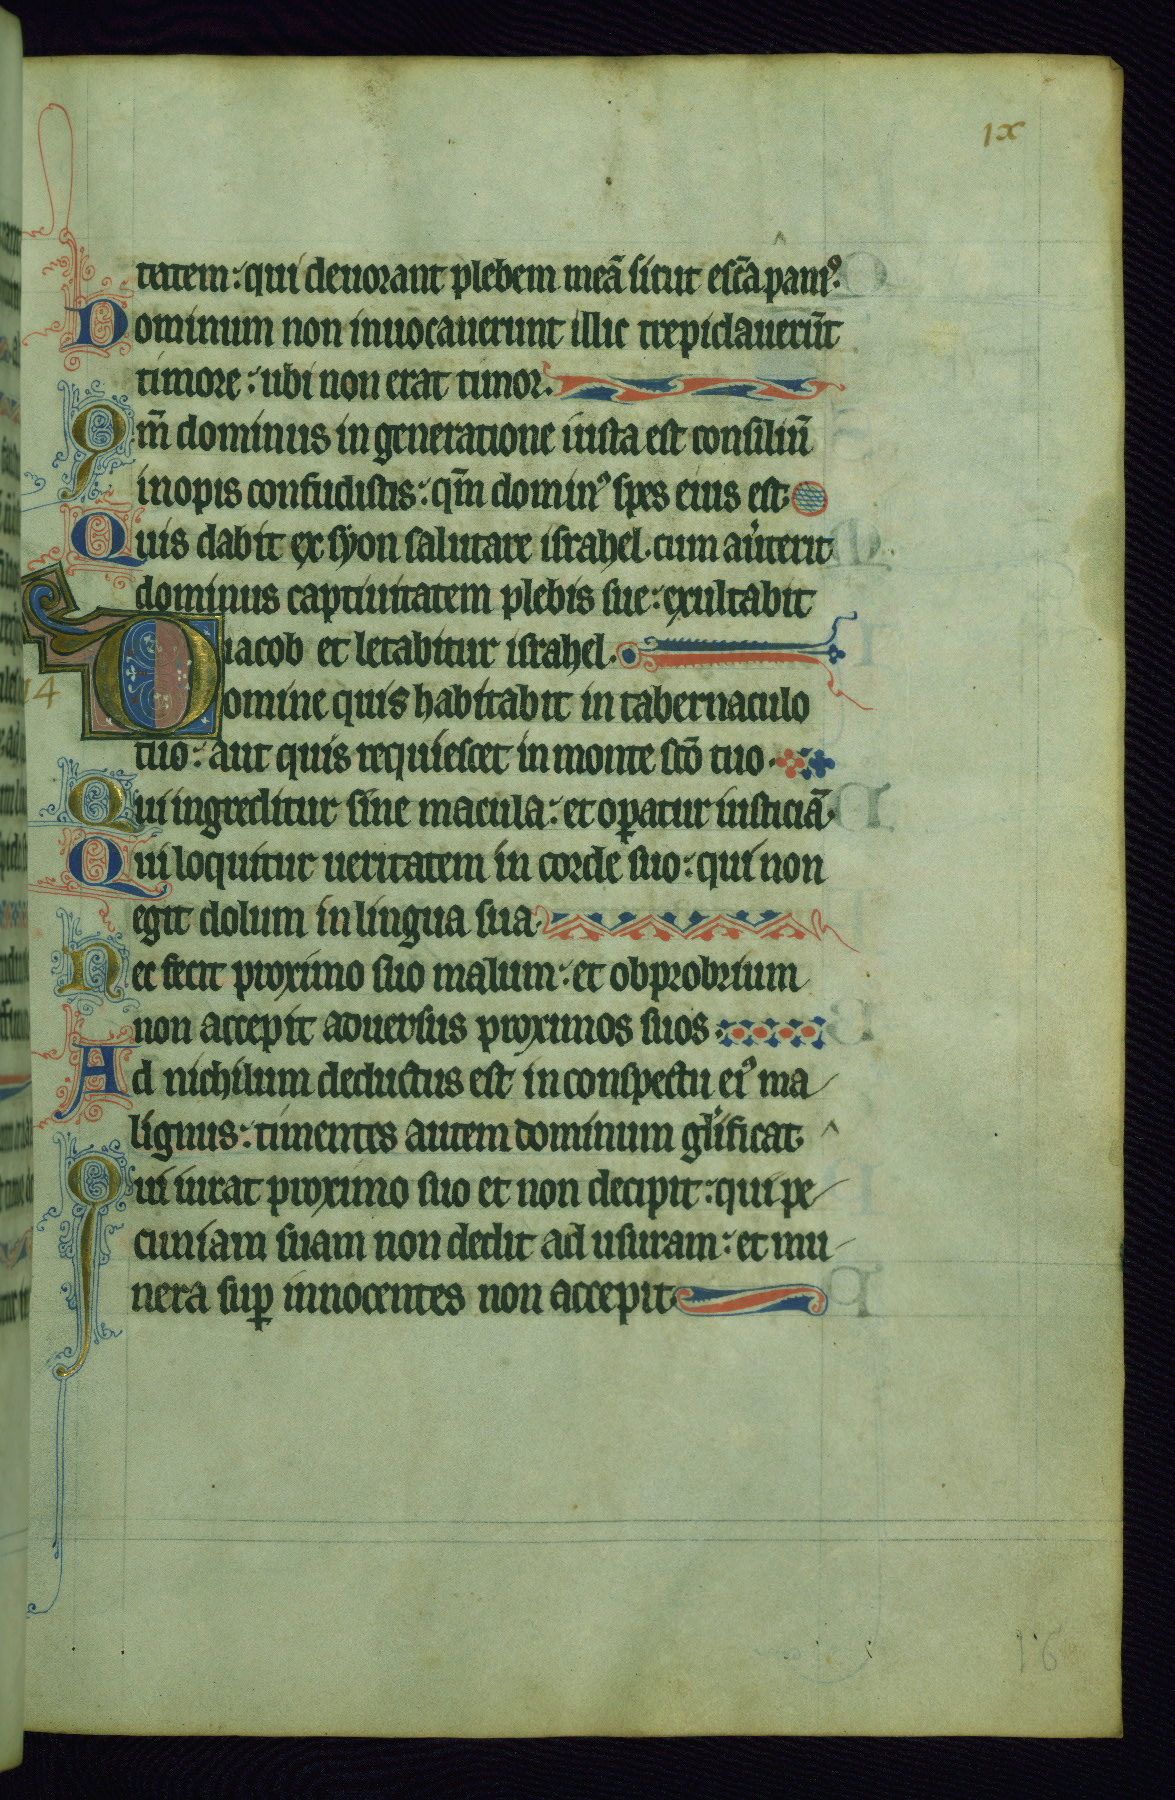 ix
tatem: qui deuorant plebem meã sicut escã panis.
Dominum non inuocauerunt illic trepidauerũt
timore: ubi non erat timor.
Qm̃ dominus in generatione iusta est consiliũ
inopis confudistis: qm̃ dominꝰ spes eius est
Quis dabit ex syon salutare israhel. cum au͛terit
dominus captiuitatem plebis sue: exultabit
iacob et letabitur israhel.
14
Domine quis habitabit in tabernaculo
tuo: aut quis requiescet in monte scõ tuo.
Qui ingreditur sine macula: et oꝑatur iusticiã
Qui loquitur ueritatem in corde suo: qui non
egit dolum in lingua sua.
Nec fecit proximo suo malum: et obprobrium
non accepit aduersus proximos suos.
Ad nichilum deductus est in conspectu eiꝰ ma
lignus: timentes autem dominum gl͛ificat
Qui iurat proximo suo et non decipit: qui pe
cuniam suam non dedit ad usuram: et mu
nera suꝑ innocentes non accepit
16